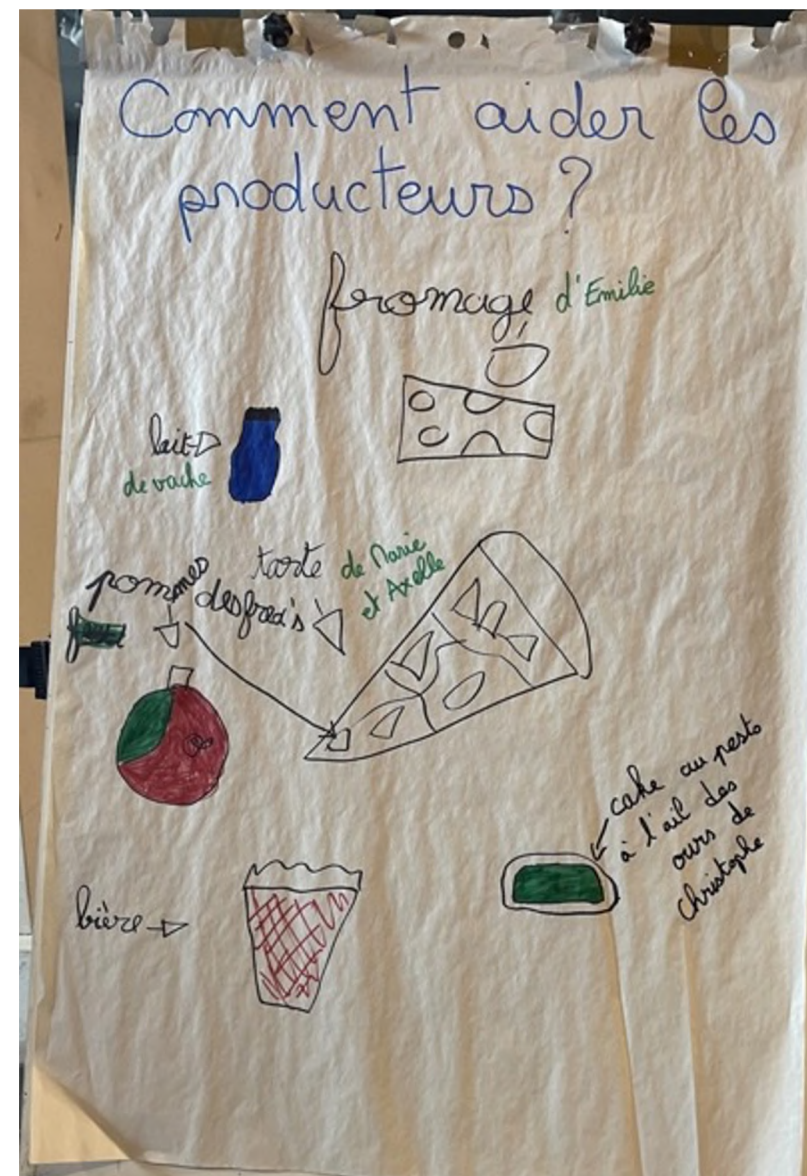 Comment aider les
producteurs ?
fromage d'Emilie
lait
de vache
pommes
des fred's
tarte de Marie
et Axelle
cake au pesto
à l'ail des
ours de
christophe
bière